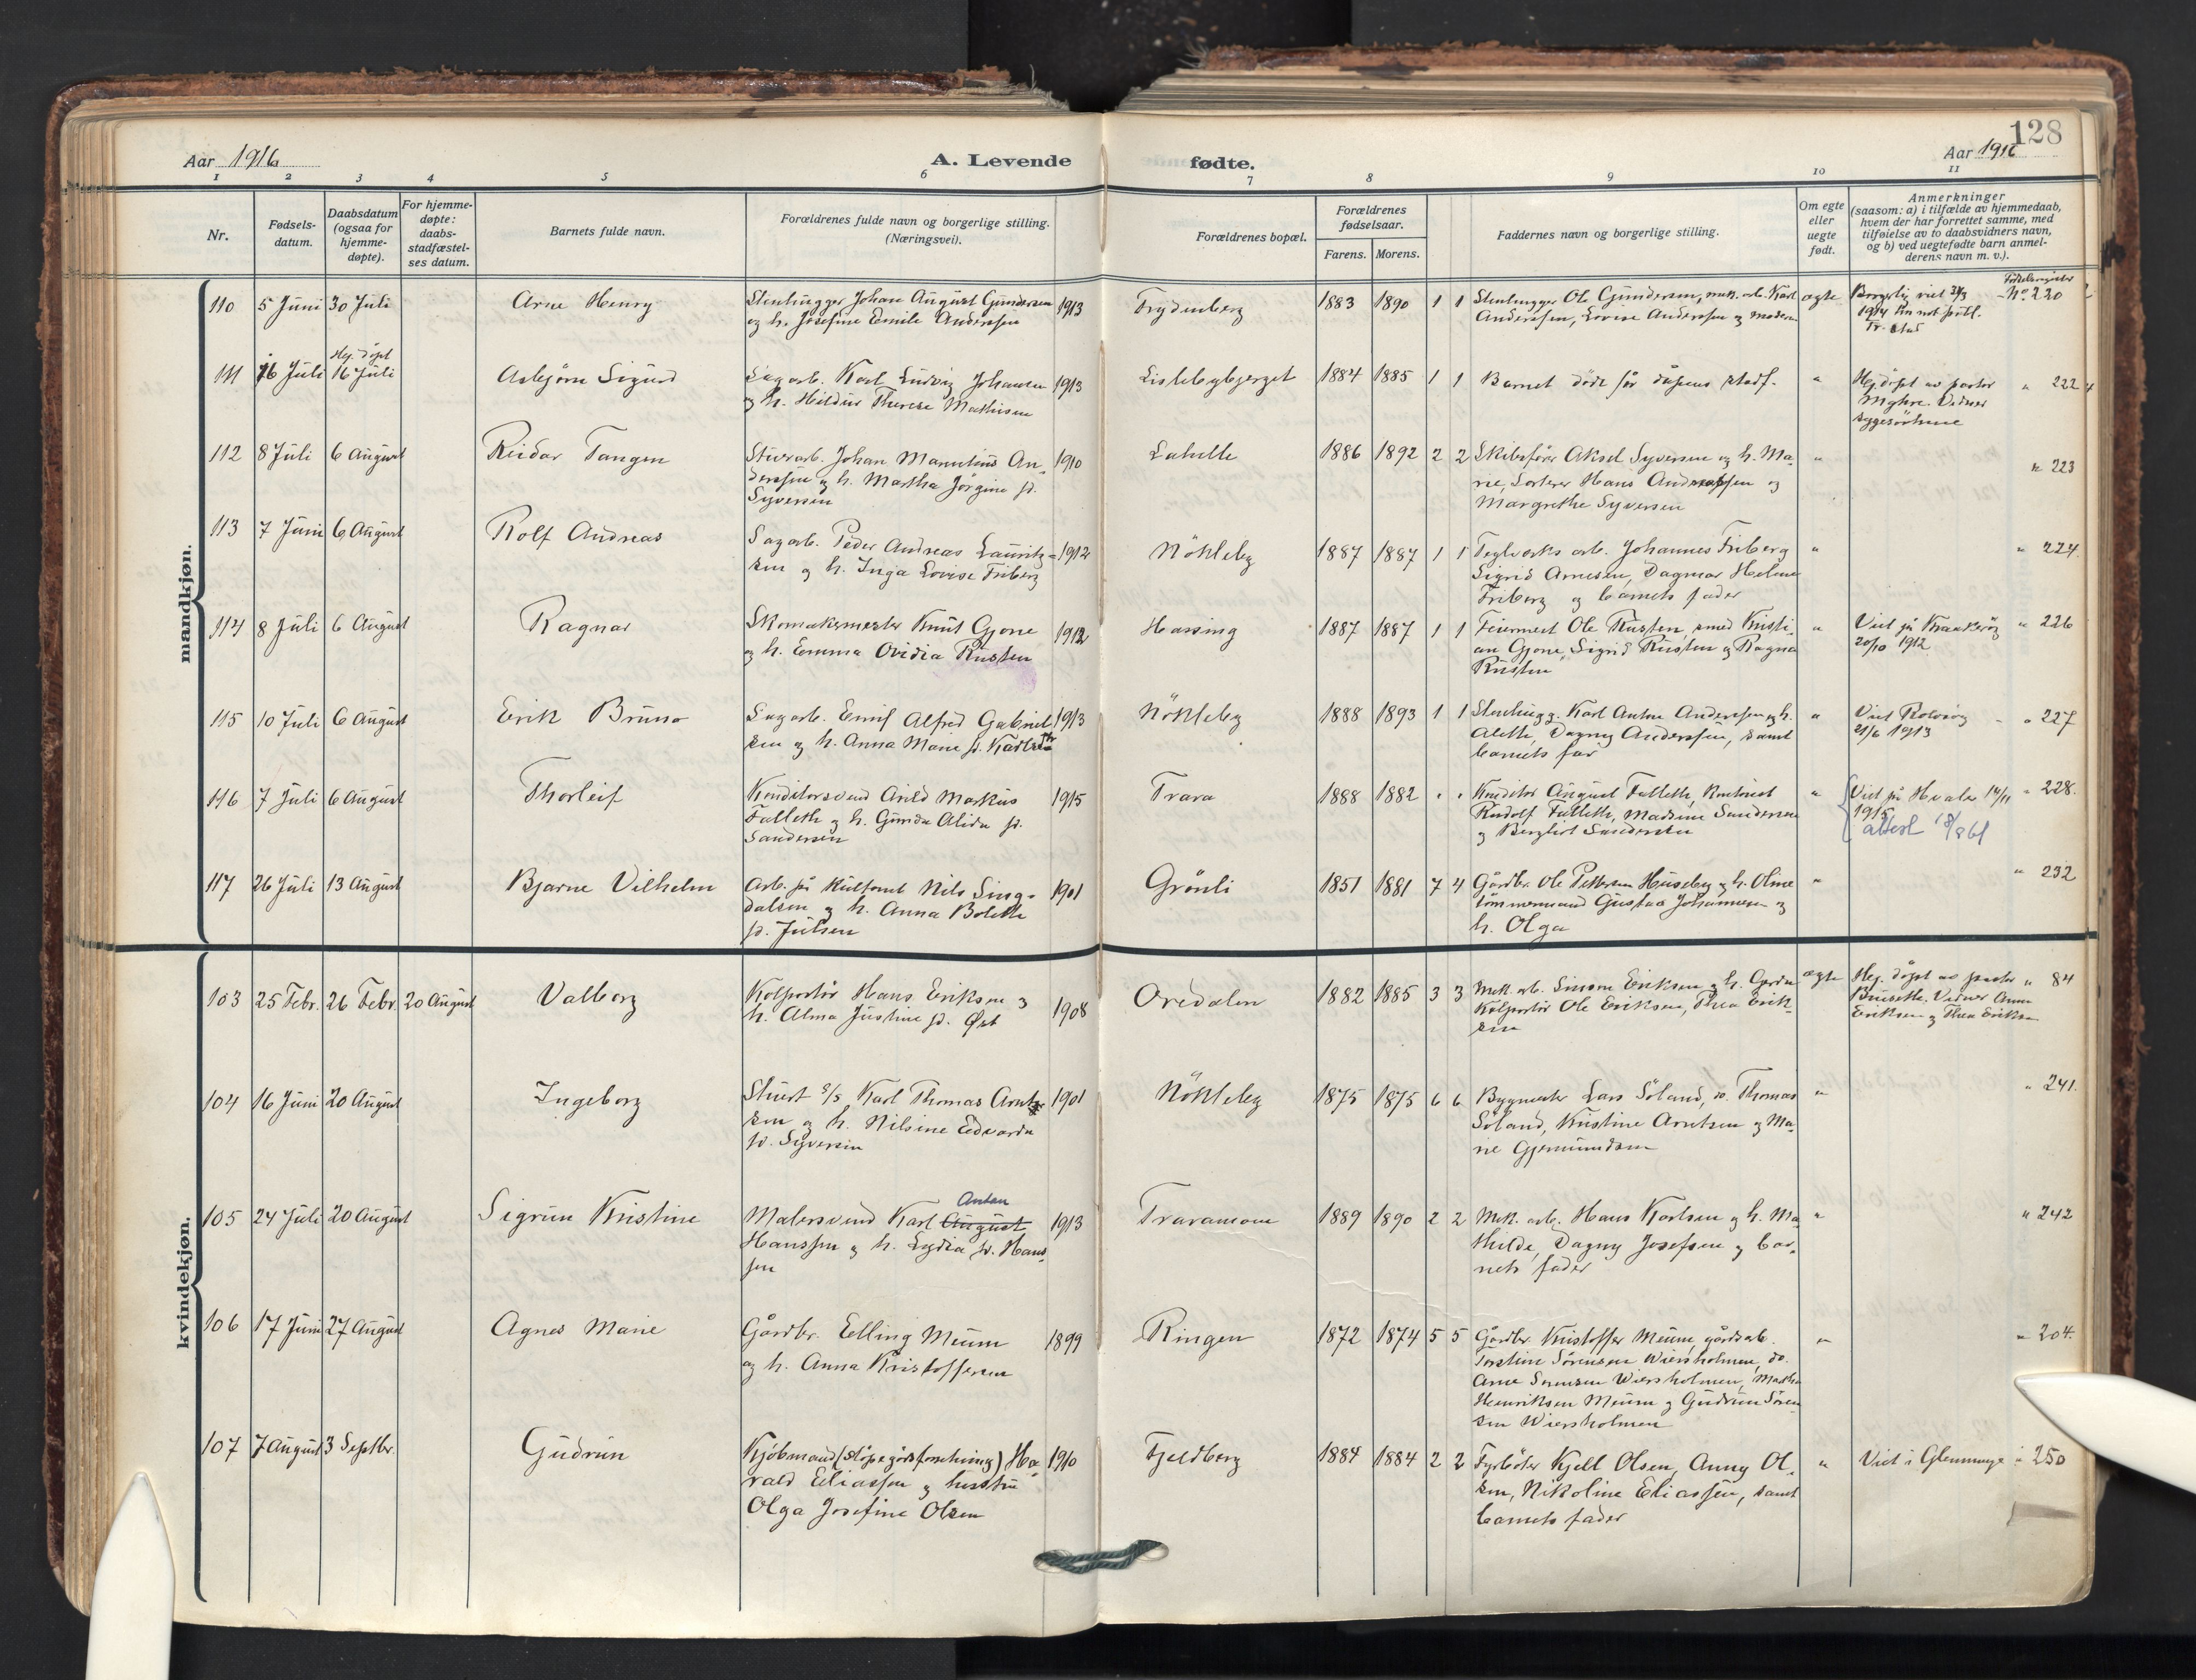 128
Aar 1916
A. Levende
fødte.
Aar 1916
1 2 3 4 5 6 7 8 9 10 11
Nr.
Fødsels-
datum.
Daabsdatum
(ogsaa for
hjemme-
døpte).
For hjemme-
døpte:
daabs-
stadfæstel-
ses datum.
Barnets fulde navn.
Forældrenes fulde navn og borgerlige stilling.
(Næringsvei).
Forældrenes bopæl.
Forældrenes
fødselsaar.
Farens. Morens.
Faddernes navn og borgerlige stilling.
Om egte
eller
uegte
født.
Anmerkninger
(saasom: a) i tilfælde av hjemmedaab,
hvem der har forrettet samme, med
tilføielse av to daabsvidners navn,
og b) ved uegtefødte barn anmel-
derens navn m. v.).
mandkjøn.
110 5 Juni 30 Juli Arne Henry Stenhugger Johan August Gundersen 1913 Frydenberg 1883 1890 1 1 Stenhugger Ole Gundersen, mek. arb. Karl ægte No 220
og h. Josefine Emilie Anderssen
Anderssen, Lovise Anderssen og moderen
Hj. döpt
111 16 Juli 16 Juli Asbjørn Sigurd Sagarb. Karl Ludvig Johansen 1913 Lislebybjerget 1884 1885 1 1 Barnet döde för dåpens stadf. " Hj. döpt av pastor " 222
og h. Hildur Therese Mathisen
Myhre. Vidner
112 8 Juli 6 August Reidar Tangen Stuerarb. Johan Manutius An- 1910 Lahelle 1886 1892 2 2 Skibsfører Aksel Syversen og h. Ma- " " 223
derssen og h. Martha Jörgine f.
Syversen
rie, Sorterer Hans Anderssen og
Margrethe Syversen
113 7 Juni 6 August Rolf Andreas Sagarb. Peder Andreas Lauritz- 1912 Nökleby 1887 1887 1 1 Teglverks arb. Johannes Friberg " " 224
sen og h. Inga Lovise Friberg
Sigrid Arnesen, Dagmar Helene
Friberg og barnets fader
114 8 Juli 6 August Ragnar Skomakermester Knut Gjone 1912 Hassing 1887 1887 1 1 Feiermest Ole Rusten, smed Kristi- " Viet på Kraakerøy " 226
og h. Emma Ovidia Rusten
an Gjone, Sigrid Rusten og Ragna
Rusten
20/10 1912
115 10 Juli 6 August Erik Bruno Sagarb. Emil Alfred Gabriel- 1913 Nökleby 1888 1893 1 1 Stenhugg. Karl Anton Anderssen og h. " Viet Rolvsøy " 227
sen og h. Anna Marie f. Karlsen
Alette, Dagny Anderssen, samt
barnets far
21/6 1913
116 7 Juli 6 August Thorleif Konditorsvend Arild Markus 1915 Trara 1888 1882 . . Konditor August Falleth, Kontorist " Viet på Hvaler 14/11 " 228.
Falleth og h. Gunda Alida f.
Sandersen
Rudolf Falleth, Madsine Sandersen
og Bergliot Sandersen
1915
attest 18/8 61
117 26 Juli 13 August Bjarne Vilhelm Arb. på Kultomt Nils Sing- 1901 Grönli 1851 1881 7 4 Gårdbr. Ole Pettersen Huseby og h. Oline " " 232
dalsen og h. Anna Bolette
f. Julsen
tömmermand Gustav Johannesen og
h. Olga
kvindekjøn.
103 25 Febr. 26 Febr. 20 August Valborg Kolportör Hans Eriksen og 1908 Oredalen 1882 1885 3 3 Mek. arb. Simon Eriksen og h. Gerda ægte Hj. döpt av pastor " 84
h. Alma Justine f. Øst
Kolportör Ole Eriksen, Thea Erik-
sen
Vidner Anna
Eriksen og Thea Eriksen
104 16 Juni 20 August Ingeborg Stuert D/S Karl Thomas Arnt- 1901 Nökleby 1875 1875 6 6 Bygmester Lars Söland, do. Thomas " " 241.
sen og h. Nilsine Edvarda
f. Syversen
Söland, Kristine Arntsen og Ma-
rie Gjermundsen
Anton
105 24 Juli 20 August Sigrun Kristine Malersvend Karl August 1913 Traramoen 1889 1890 2 2 Mek. arb. Hans Karlsen og h. Ma- " " 242
Hanssen og h. Lydia f. Hans-
sen
thilde, Dagny Josefsen og bar-
nets fader
106 17 Juni 27 August Agnes Marie Gårdbr. Elling Meum 1899 Ringen 1872 1874 5 5 Gårdbr. Kristoffer Meum, gårdsarb. " " 204.
og h. Anna Kristoffersen
Torstein Sörensen Wiersholmen, do.
Arne Sörensen Wiersholmen, Martha
Henriksen Meum og Gudrun Sören-
sen Wiersholmen
107 7 August 3 Septbr. Gudrun Kjöbmand (Slöpegårdsforretning) Ha- 1910 Fjeldberg 1884 1884 2 2 Fyrböter Kjell Olsen, Anny Ol- " Viet i Glemminge " 250
rald Eliassen og hustru
Olga Josefine Olsen
sen, Nikoline Eliassen, samt
barnets fader